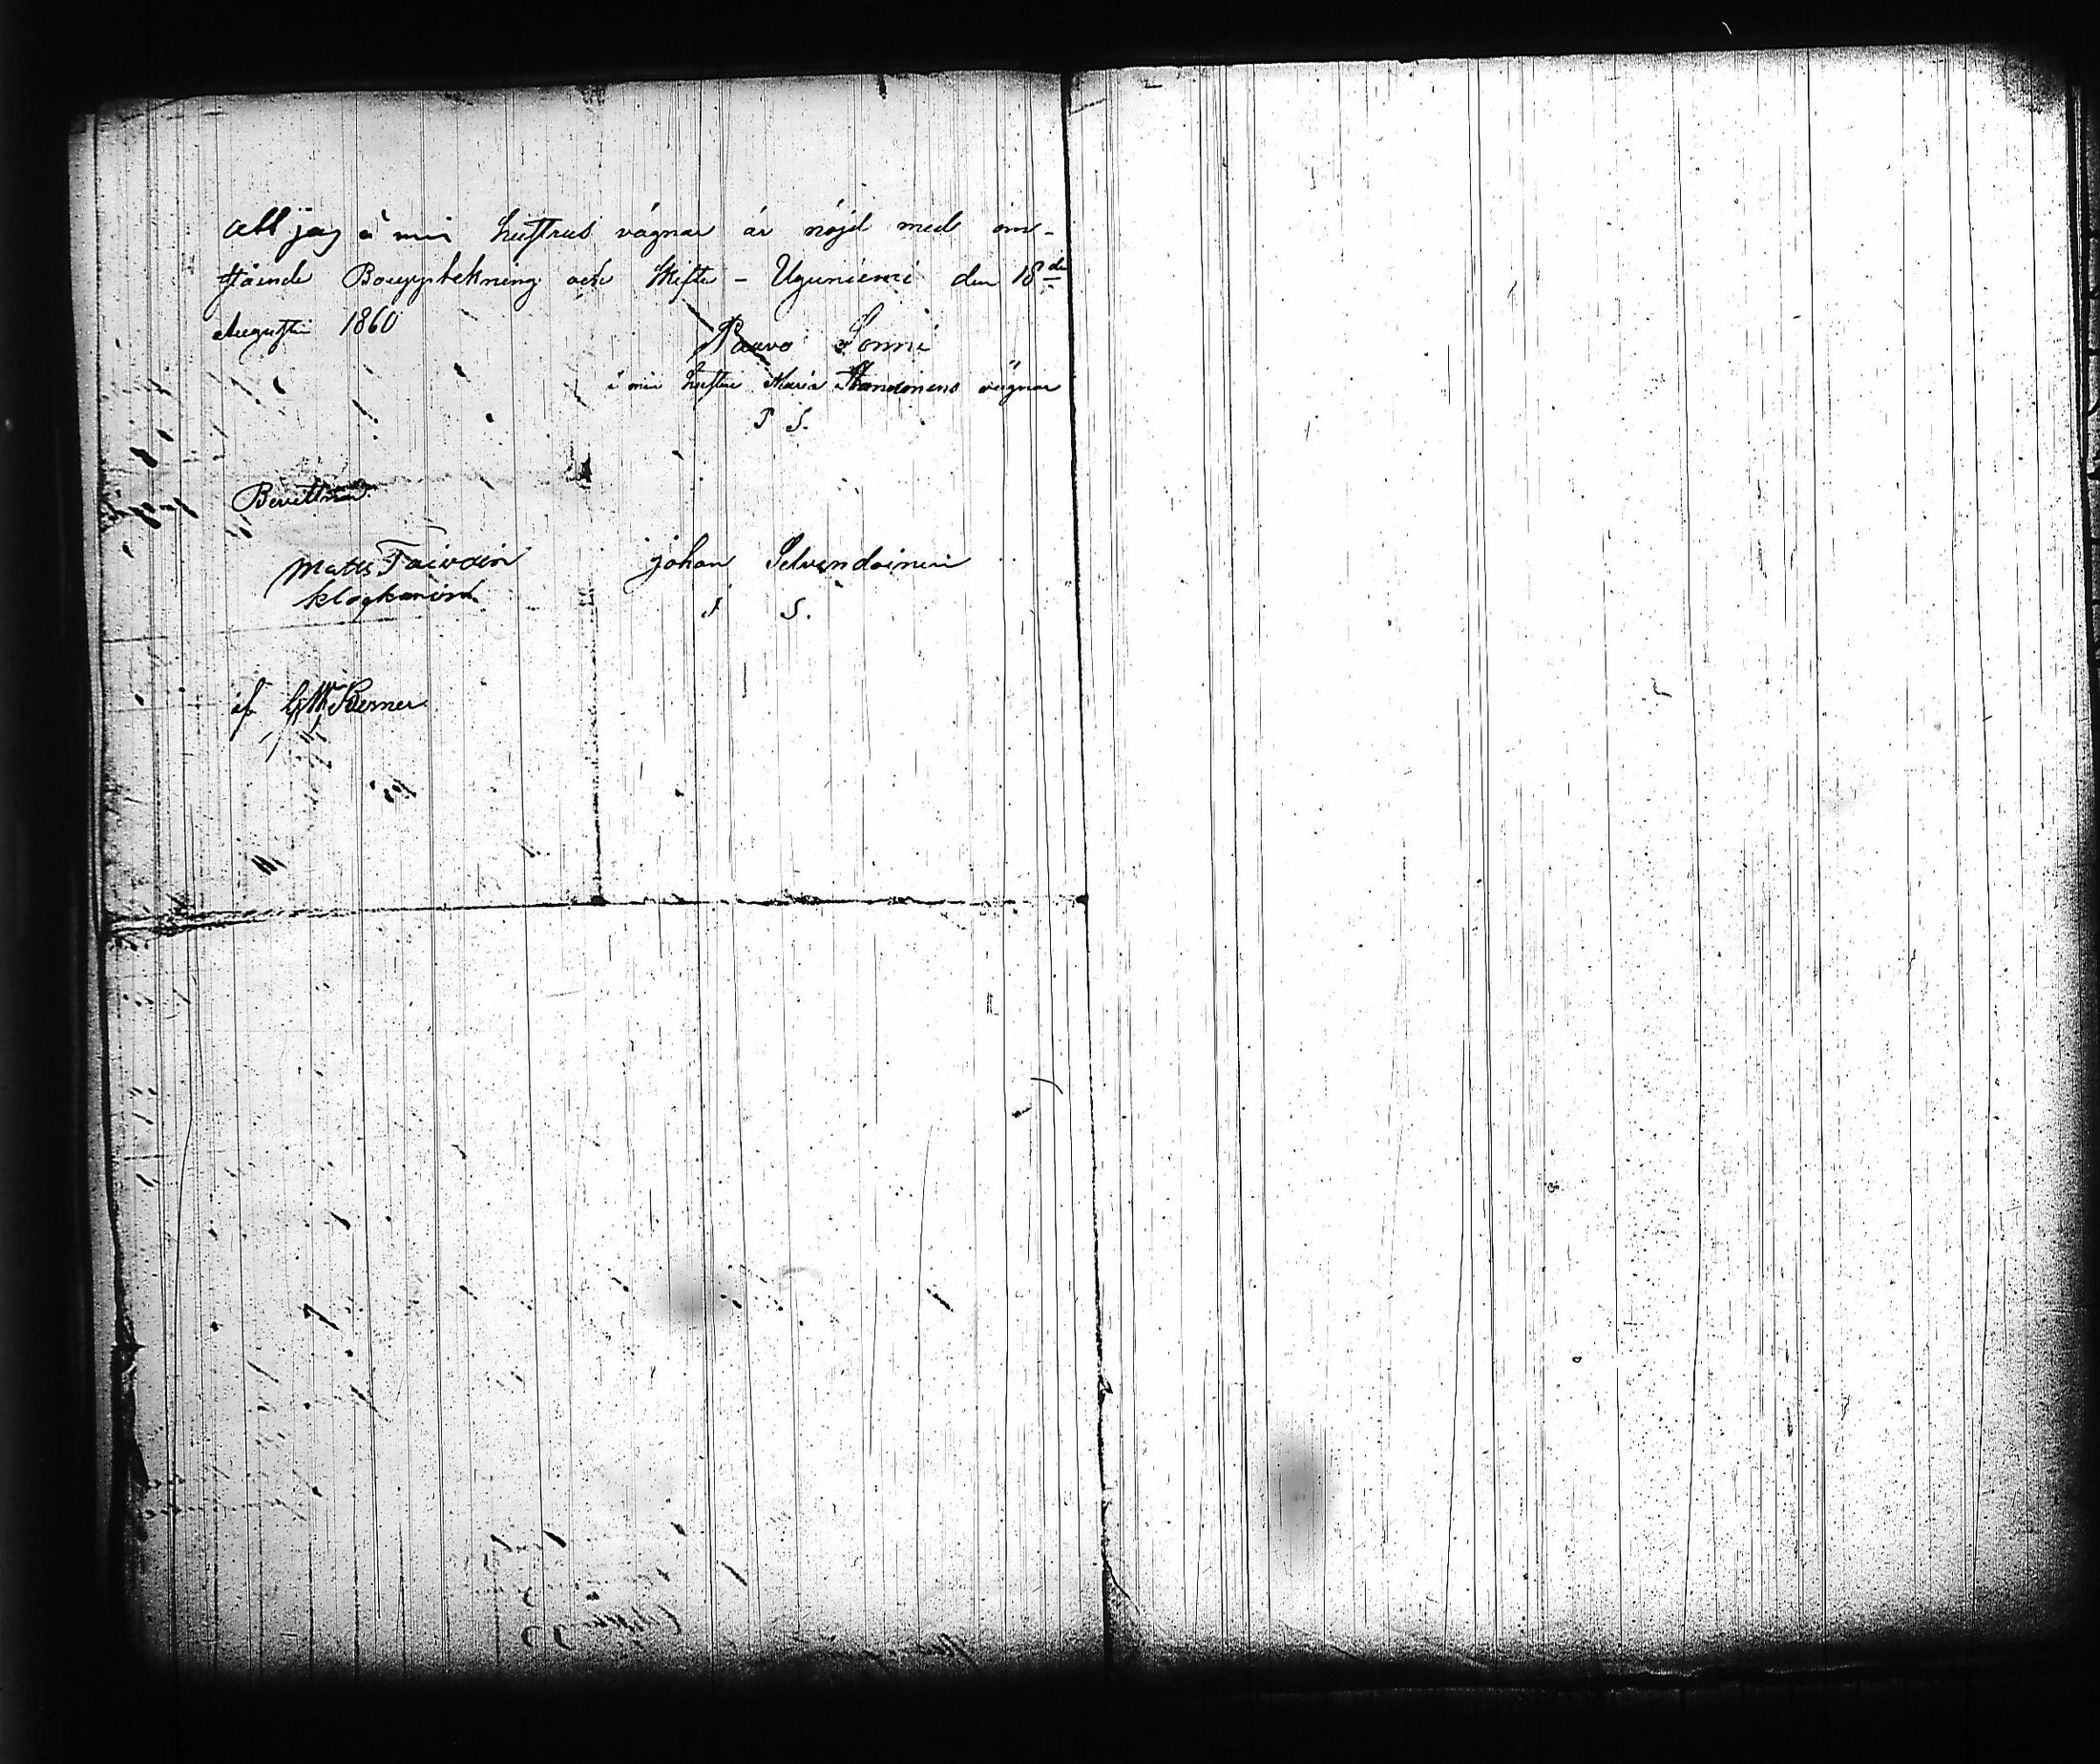 Att jag å min hustrus vägnar är nöjd med om-
stående Bouppteckning och Skifte - Uguniemi den 18de
Augusti 1860
Paavo Sonni
å min hustru Maria vägnar
P S.
Bevittna
Matts Taivain johan Selvendoinen
klockarein S.
af GW Perner